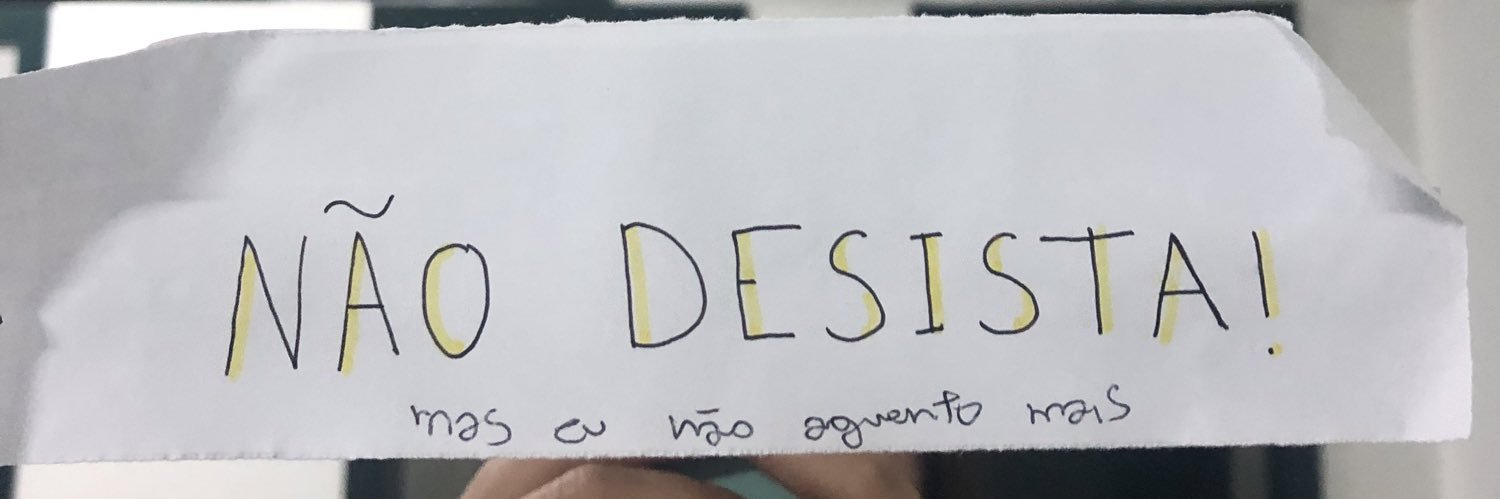 NÃO DESISTA!
mas eu não aguento mais